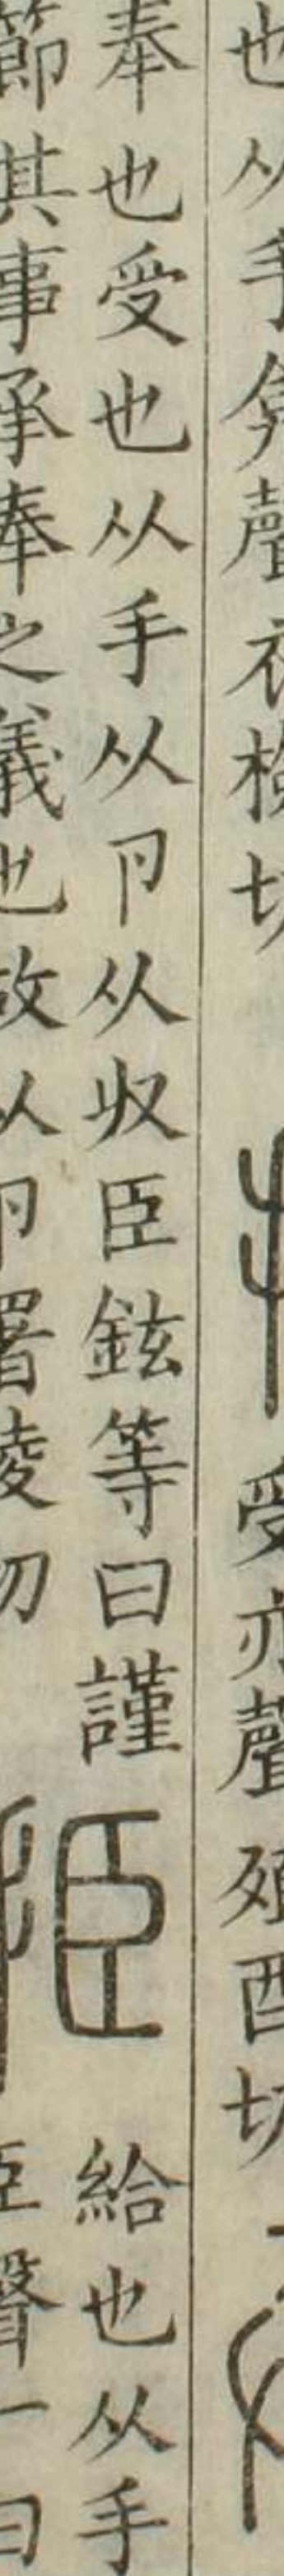 也从手弇聲衣檢切 受亦聲殖酉切
奉也受也从手从卪从収臣鉉等曰謹 給也从手
節其事承奉之義也故从卪署陵切 臣聲一曰